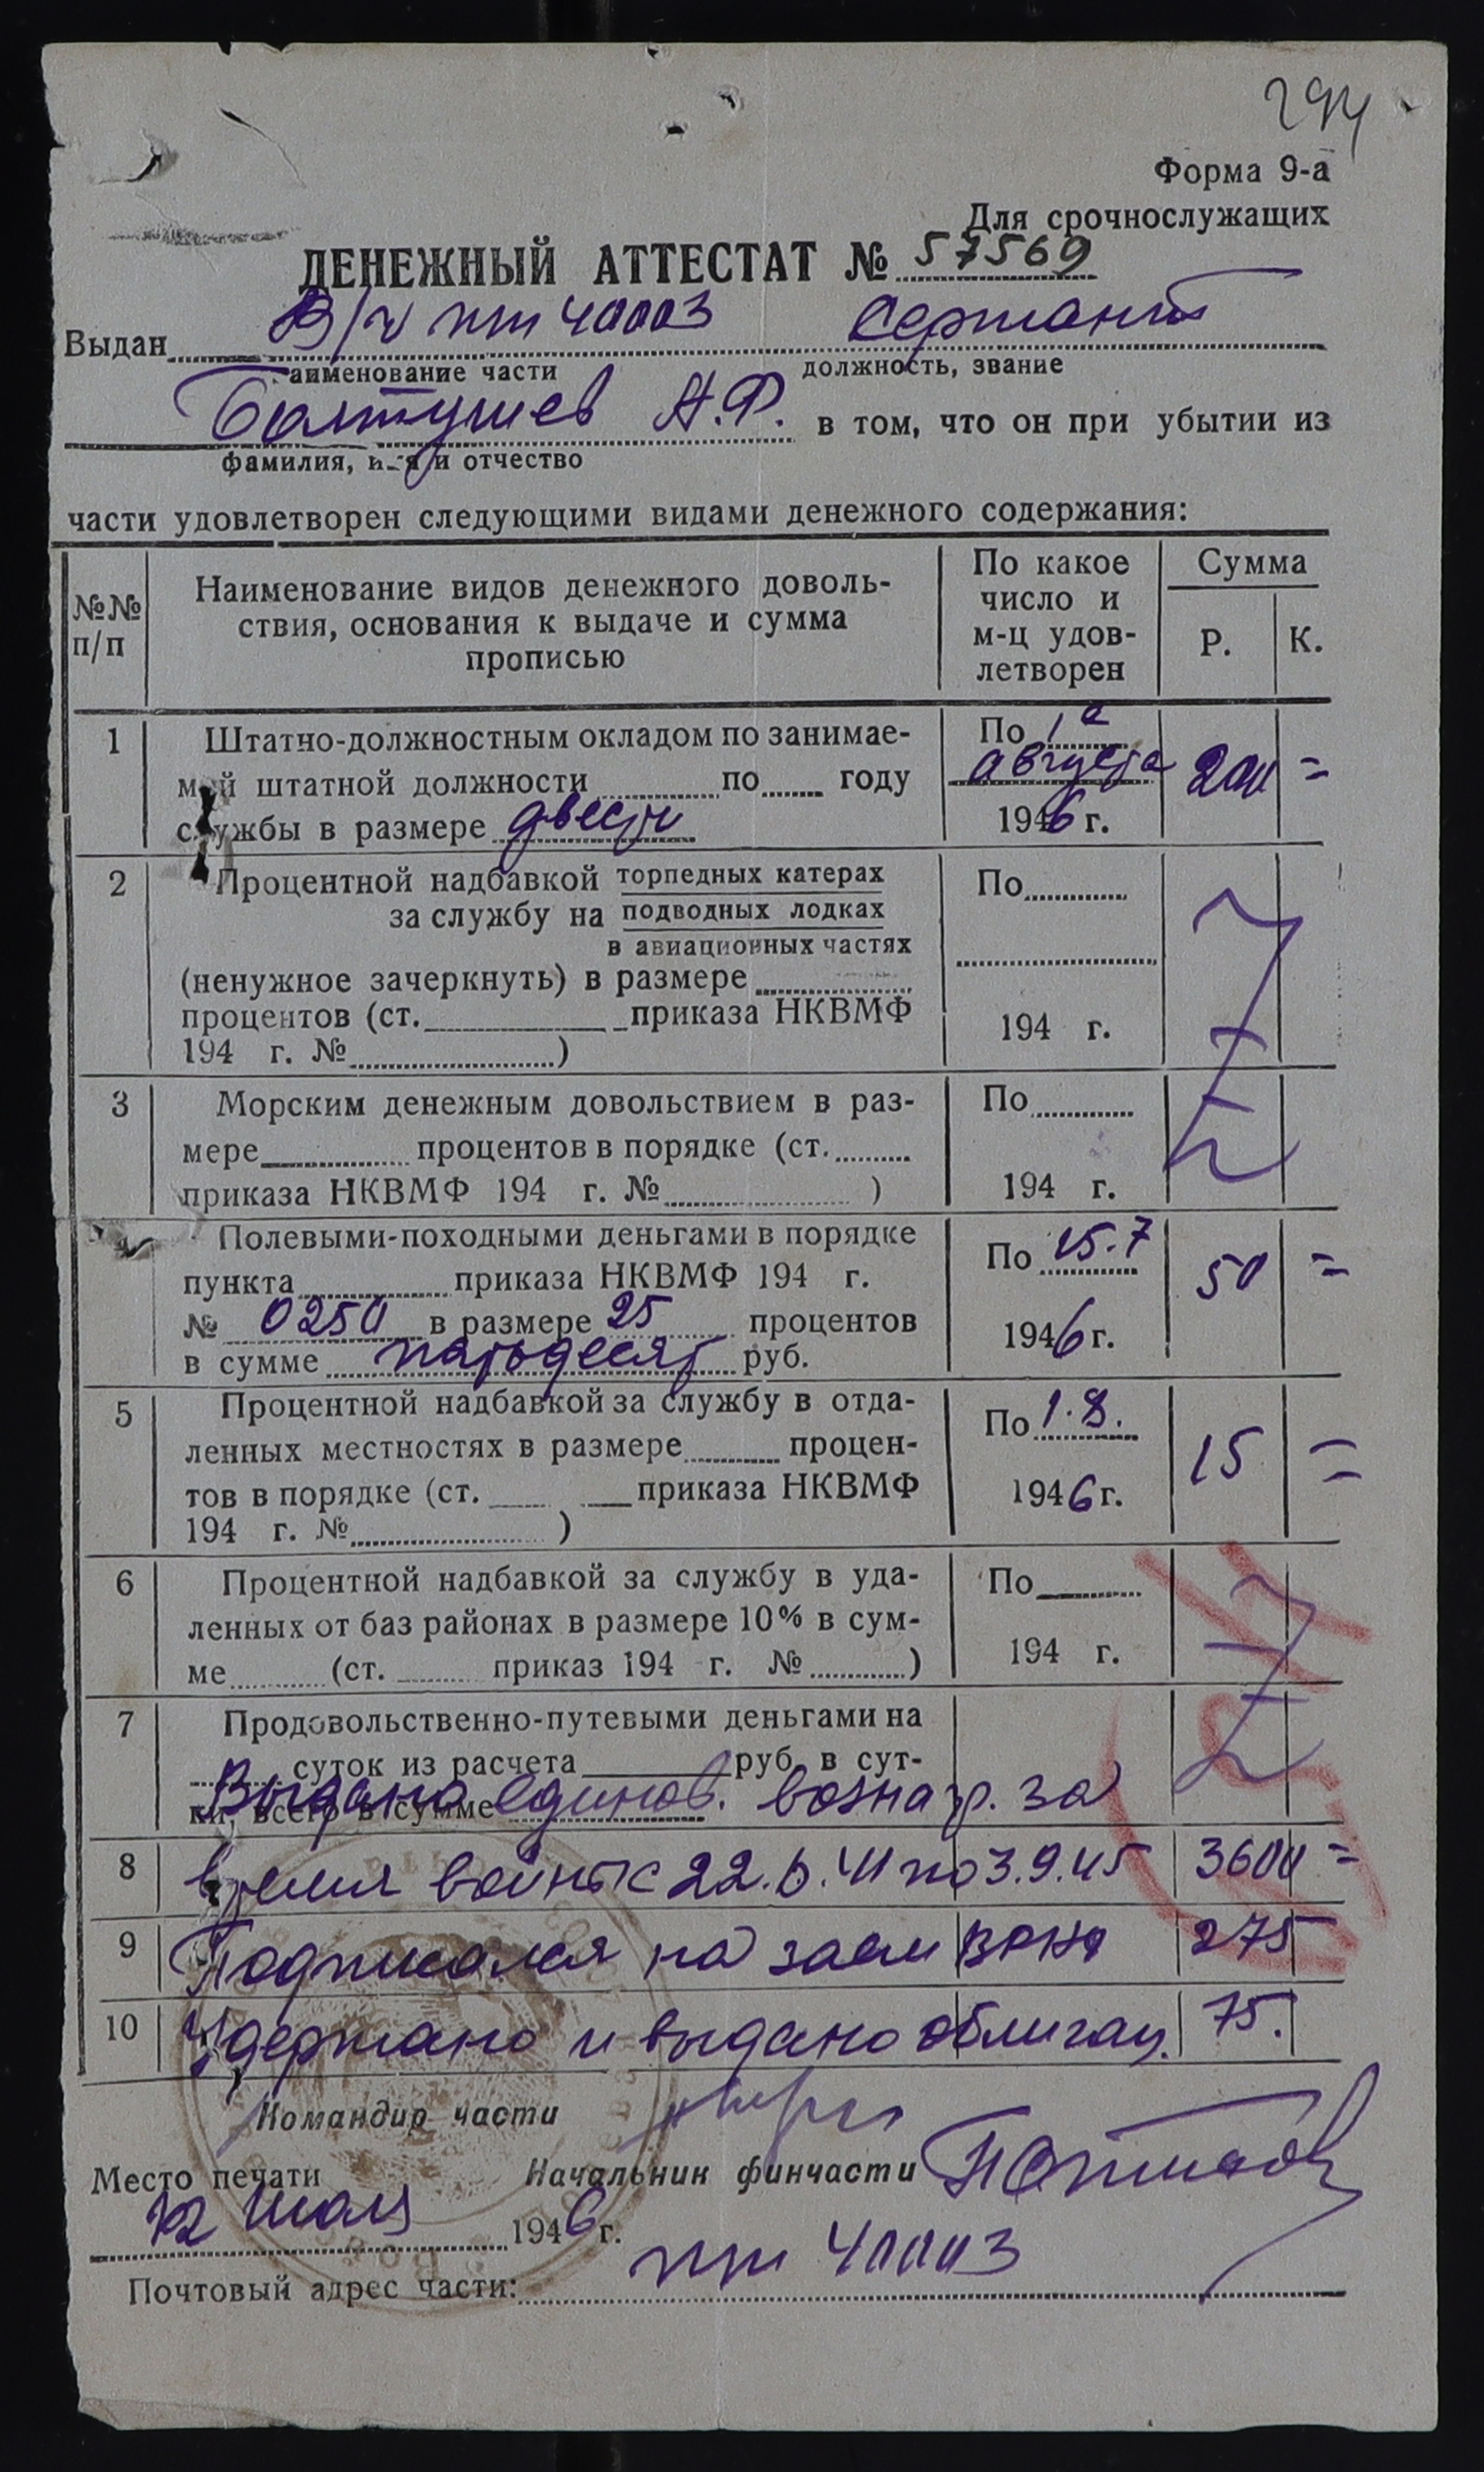 294
Форма 9-а
Для срочнослужащих
ДЕНЕЖНЫЙ АТТЕСТАТ № 57569
Выдан В/ч пп 40003 Сержант
наименование части должность, звание
Балтушев А.Ф. в том, что он при убытии из
фамилия, имя и отчество
части удовлетворен следующими видами денежного содержания:
№№ п/п Наименование видов денежного доволь-
ствия, основания к выдаче и сумма
прописью
По какое
число и
м-ц удов-
летворен
Сумма
Р. К.
1 Штатно-должностным окладом по занимае-
мой штатной должности по году
службы в размере двести
По 1е
августа
1946 г.
200 =
2 Процентной надбавкой торпедных катерах
за службу на подводных лодках
в авиационных частях
(ненужное зачеркнуть) в размере
процентов (ст. приказа НКВМФ
194 г. № )
По
194 г.
3 Морским денежным довольствием в раз-
мере процентов в порядке (ст.
приказа НКВМФ 194 г. № )
По
194 г.
4 Полевыми-походными деньгами в порядке
пункта приказа НКВМФ 194 г.
№ 0250 в размере 25 процентов
в сумме пятьдесят руб.
По 15.7
1946 г.
50 =
5 Процентной надбавкой за службу в отда-
ленных местностях в размере процен-
тов в порядке (ст. приказа НКВМФ
194 г. № )
По 1.8.
1946 г.
15 =
6 Процентной надбавкой за службу в уда-
ленных от баз районах в размере 10% в сум-
ме (ст. приказ 194 г. № )
По
194 г.
7 Продовольственно-путевыми деньгами на
суток из расчета руб. в сут-
ки, всего в сумме
Выдано единов. вознагр. за
8 время войны с 22.6.41 по 3.9.45 3600 =
9 Подписался на заем 275
10 Удержано и выдано облигац. 75.
Командир части
Место печати Начальник финчасти
12 июля 1946 г.
Почтовый адрес части: пп 40003